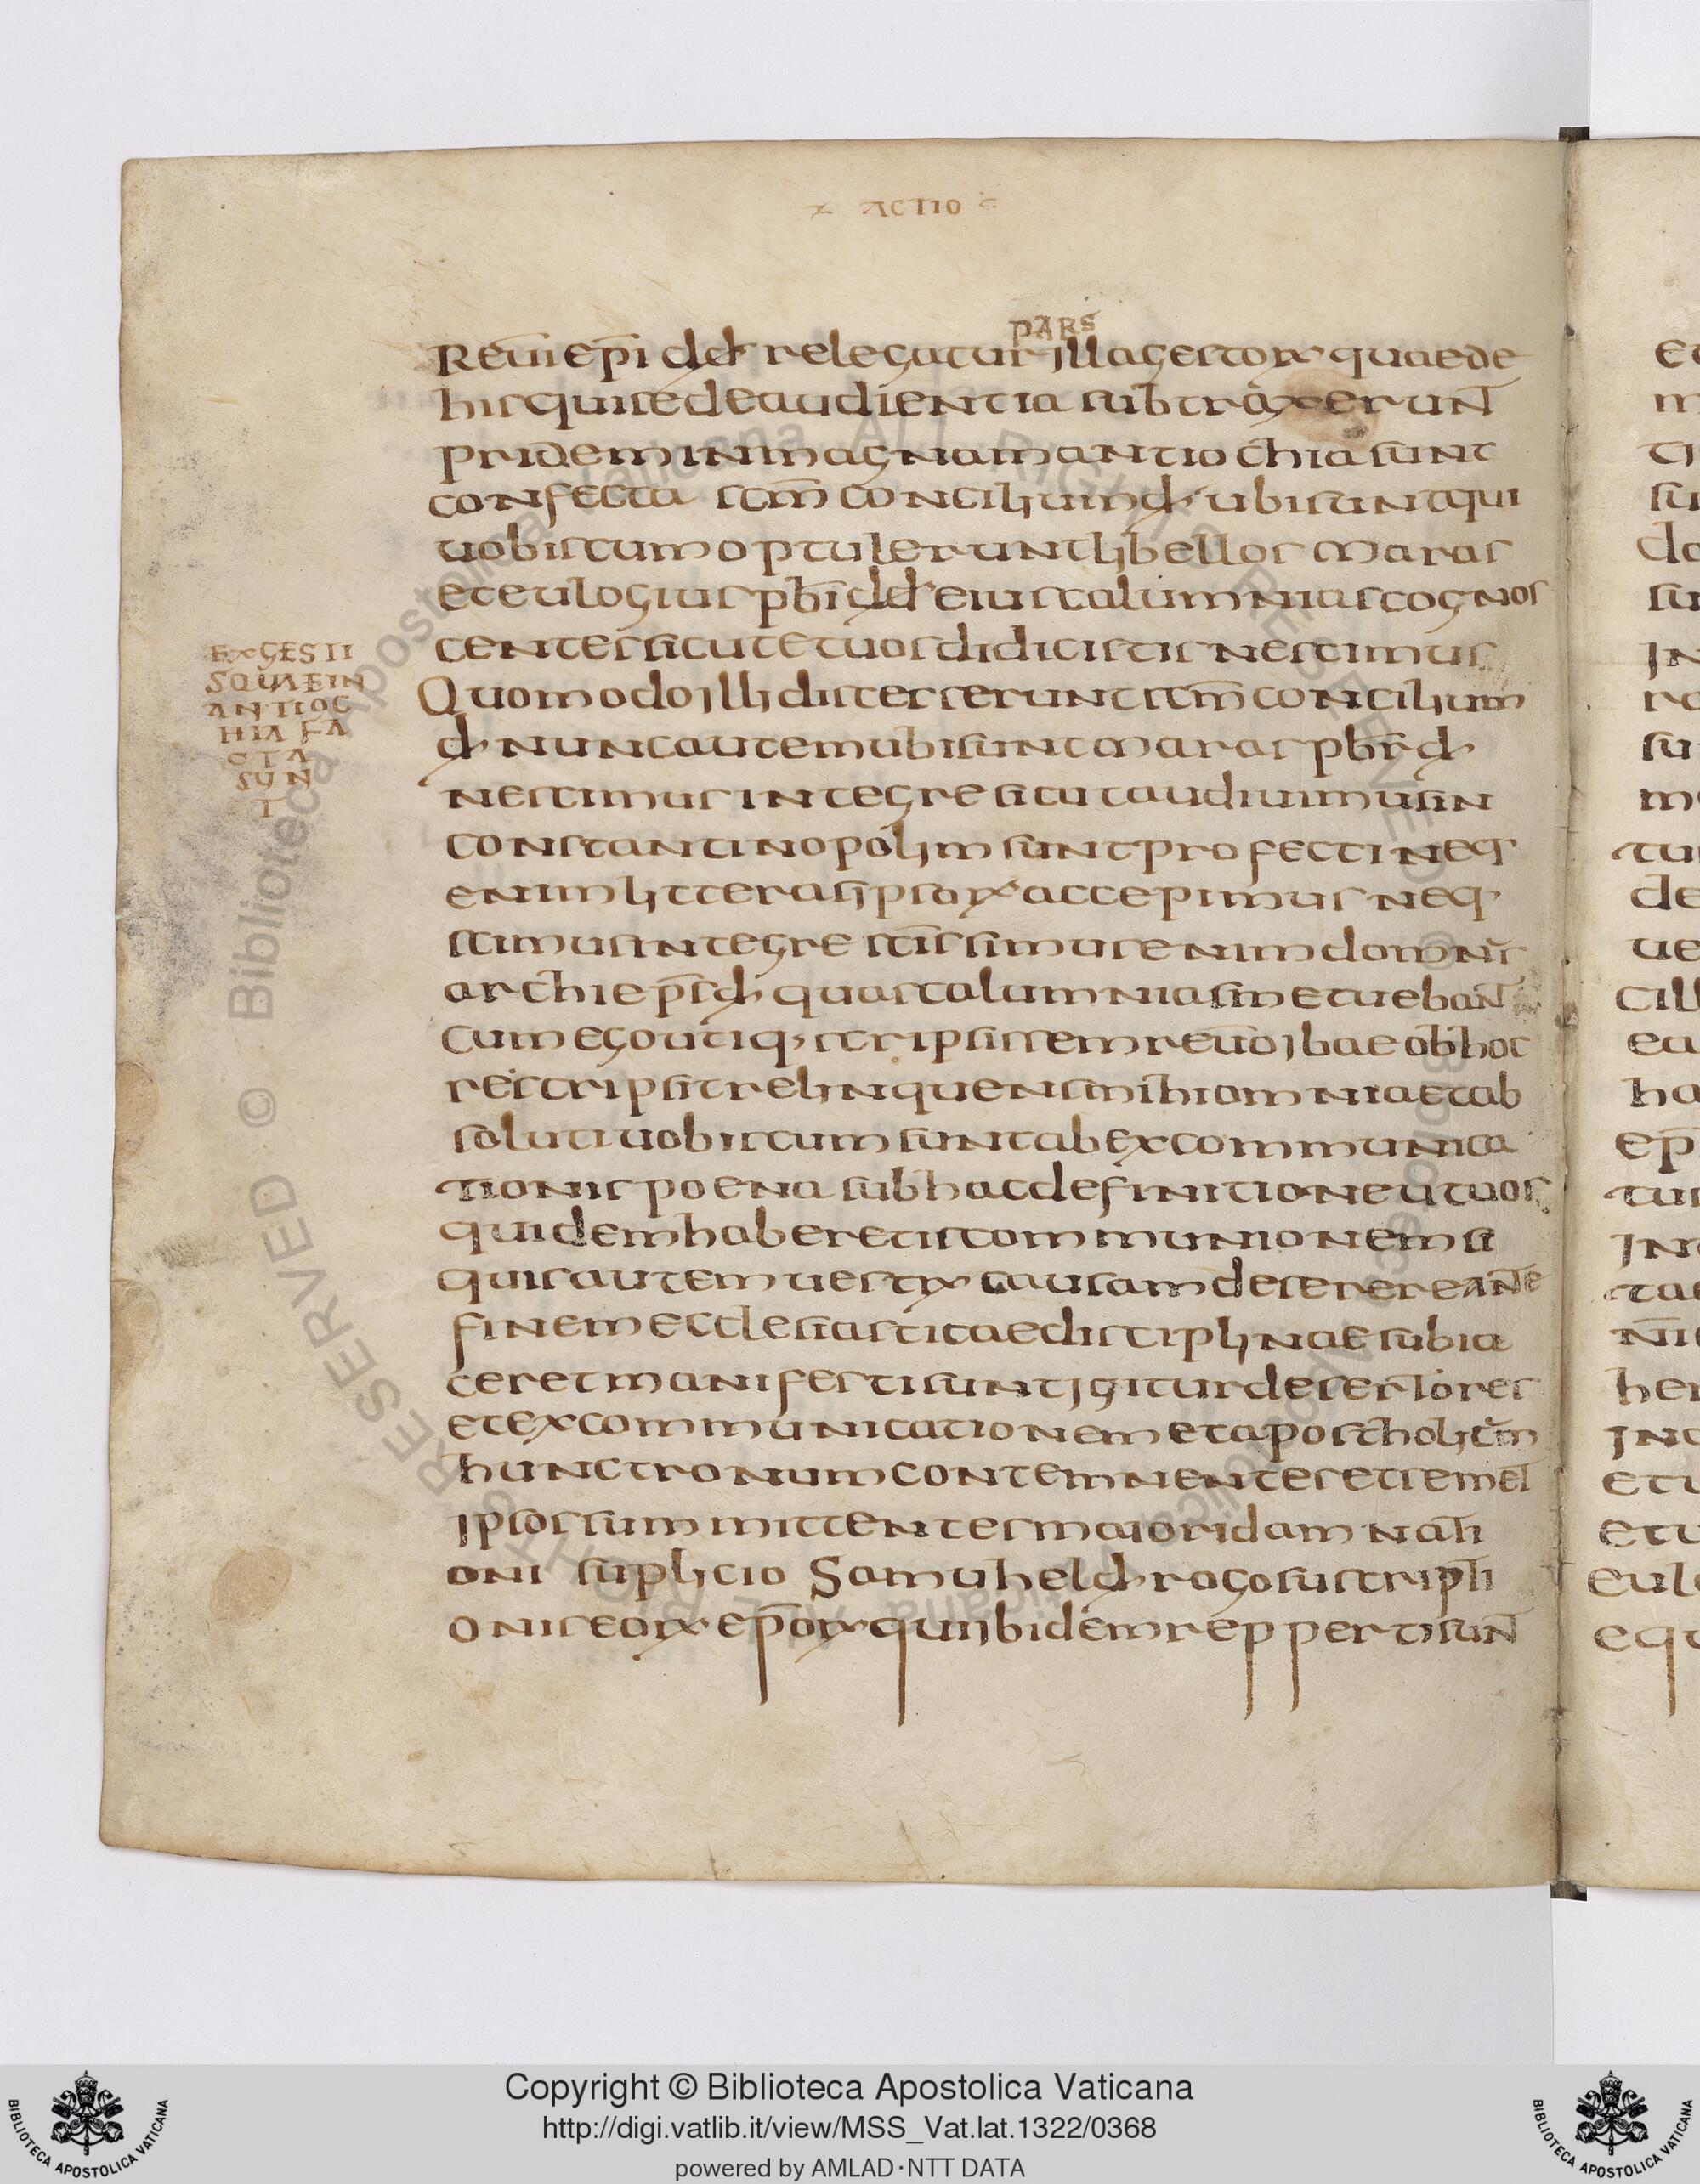 ACTIO
PARS
Reūi ep̄i dd̄ relegatur illa gestorꝝ quae de
his qui se de audientia subtraxerun̄
pridem in magnam antiochia sunt
confecta sc̄m concilium d̄ ubi sunt qui
uobiscum optulerunt libellos maras
et eulogius pb̄i dd̄ eius calumnias cognos
centes sicut et uos didicistis nescimus
Quomodo illi discesserunt sc̄m concilium
d̄ nunc autem ubi sunt maras pb̄r d̄
nescimus integre sicut audiuimus in
constantinopolim sunt profecti neq
enim litteras ipsorꝝ accepimus neq
scimus integre sc̄issimus enim domn̄s
archiep̄s d̄ quas calumnias metueban̄
cum ego utiq scripsissem reūo ibae ob hoc
rescripsit relinquens mihi omnia et ab
soluti uobiscum sunt ab excommunica
tionis poena sub hac definitione ut uos
quidem haberetis communionem si
quis autem uestrꝝ causam desereret an̄e
finem ecclesiasticae disciplinae subia
ceret manifesti sunt igitur desertores
et excommunicationem et apostholicūm
hunc tronum contemnentes et semel
ipsos summittentes maiori dam nati
oni suplicio Samuhel d̄ rogo suscripti
onis eorꝝ ep̄orꝝ qui ibidem repperti sun̄
EX GESTI
S QUAE IN
ANTIOC
HIA FA
CTA
SUN
T
Copyright © Biblioteca Apostolica Vaticana
http://digi.vatlib.it/view/MSS_Vat.lat.1322/0368
powered by AMLAD·NTT DATA
BIBLIOTECA APOSTOLICA VATICANA
BIBLIOTECA APOSTOLICA VATICANA